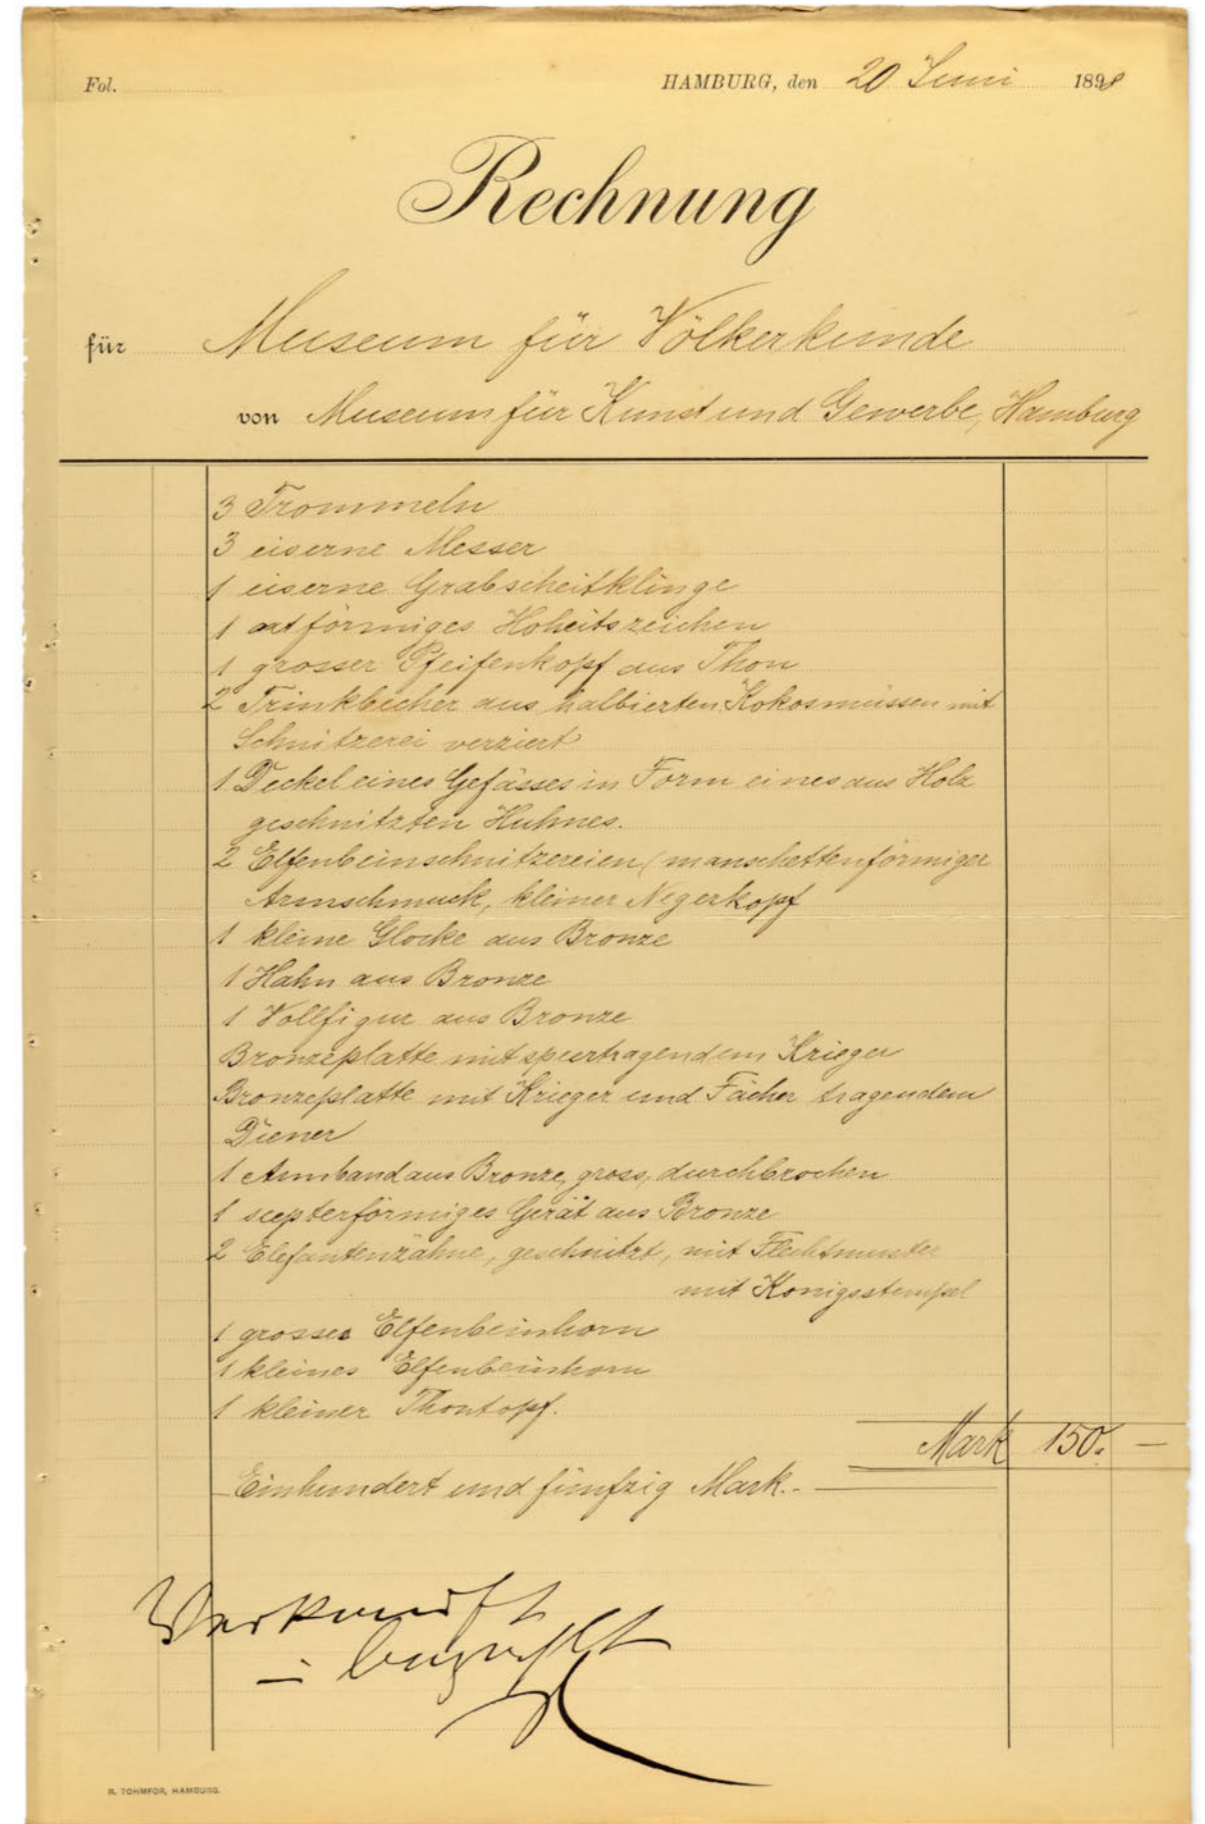 Fol.
HAMBURG, den 20 Juni 1898
Rechnung
für Museum für Völkerkunde
von Museum für Kunst und Gewerbe, Hamburg
3 Trommeln
3 eiserne Messer
1 eiserne Grabscheitklinge
1 axtförmiges Hoheitszeichen
1 grosser Pfeifenkopf aus Thon
2 Trinkbecher aus halbierten Kokosnüssen mit
Schnitzerei verziert
1 Deckel eines Gefässes in Form eines aus Holz
geschnitzten Huhnes.
2 Elfenbeinschnitzereien (manschettenförmiger
Armschmuck, kleiner Negerkopf
1 kleine Glocke aus Bronze
1 Hahn aus Bronze
1 Vollfigur aus Bronze
Bronzeplatte mit speertragendem Krieger
Bronzeplatte mit Krieger und Fächer tragendem
Diener
1 Armband aus Bronze, gross, durchbrochen
1 scepterförmiges Gerät aus Bronze
2 Elefantenzähne, geschnitzt, mit Flechtmuster
mit Konigsstempel
1 grosses Elfenbeinhorn
1 kleines Elfenbeinhorn
1 kleiner Thontopf.
Mark 150. —
Einhundert und fünfzig Mark. -
Verkauft
bezahlt
R. TOHMFOR, HAMBURG.